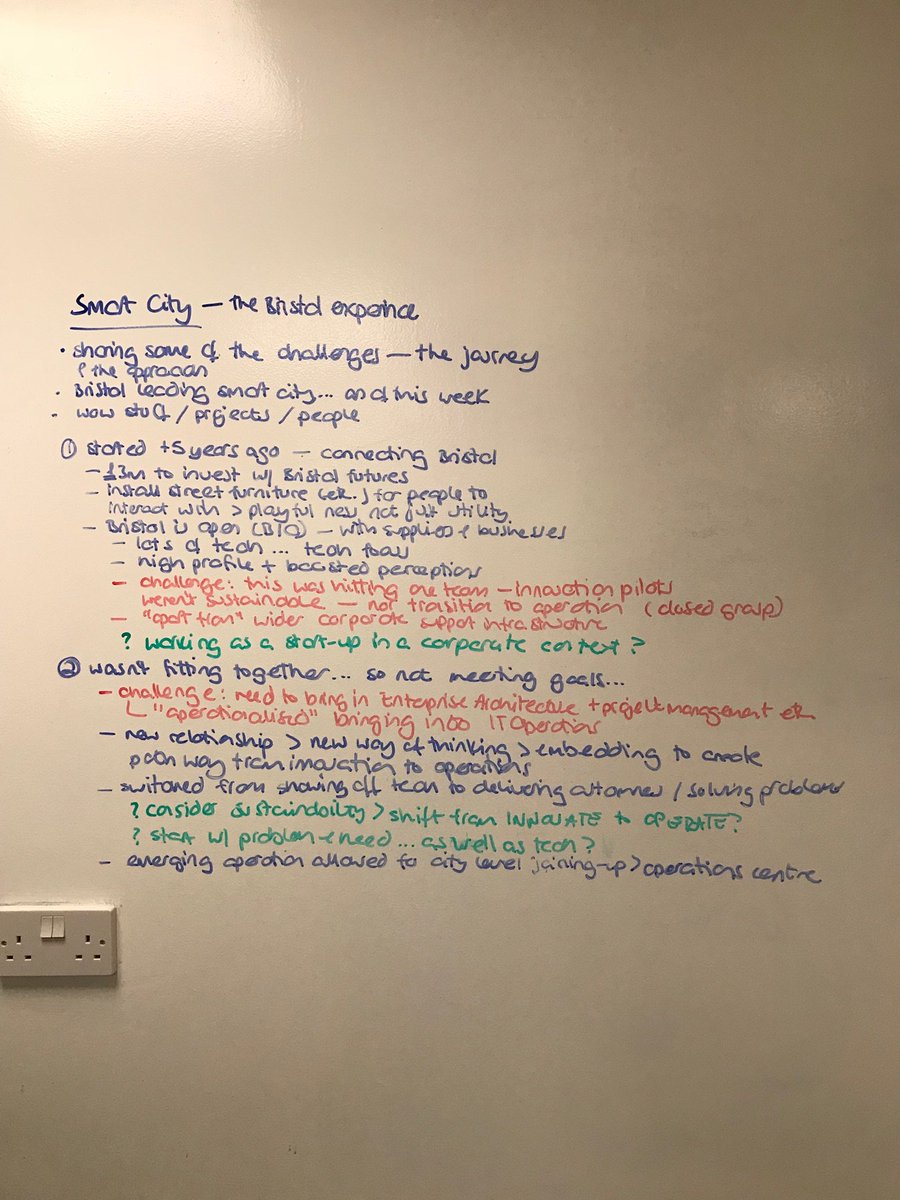 Smart City — the Bristol experience
• sharing some of the challenges — the journey
& the approach
• Bristol leading smart city... and this week
• wow stuff / projects / people
① started +5 years ago — connecting Bristol
– £3m to invest w/ Bristol futures
– install street furniture (etc.) for people to
interact with > playful new not just utility
– Bristol is open (BIO) – with suppliers & businesses
– lots of tech ... tech focus
– high profile + boosted perceptions
– challenge: this was hitting one team – innovation pilots
weren't sustainable — nor transition to operation (closed group)
– "apart from" wider corporate support infrastructure
? working as a start-up in a corporate context?
② wasn't fitting together... so not meeting goals...
– challenge: need to bring in Enterprise Architecture + project management etc
"operationalised" bringing into IT Operations
– new relationship > new way of thinking > embedding to create
path way from inovation to operations
– switched from showing off tech to delivering outcomes / solving problems
? consider sustainability > shift from INNOVATE to OPERATE?
? start w/ problem & need ... as well as tech?
– emerging operation allowed for city level joining-up > operations centre